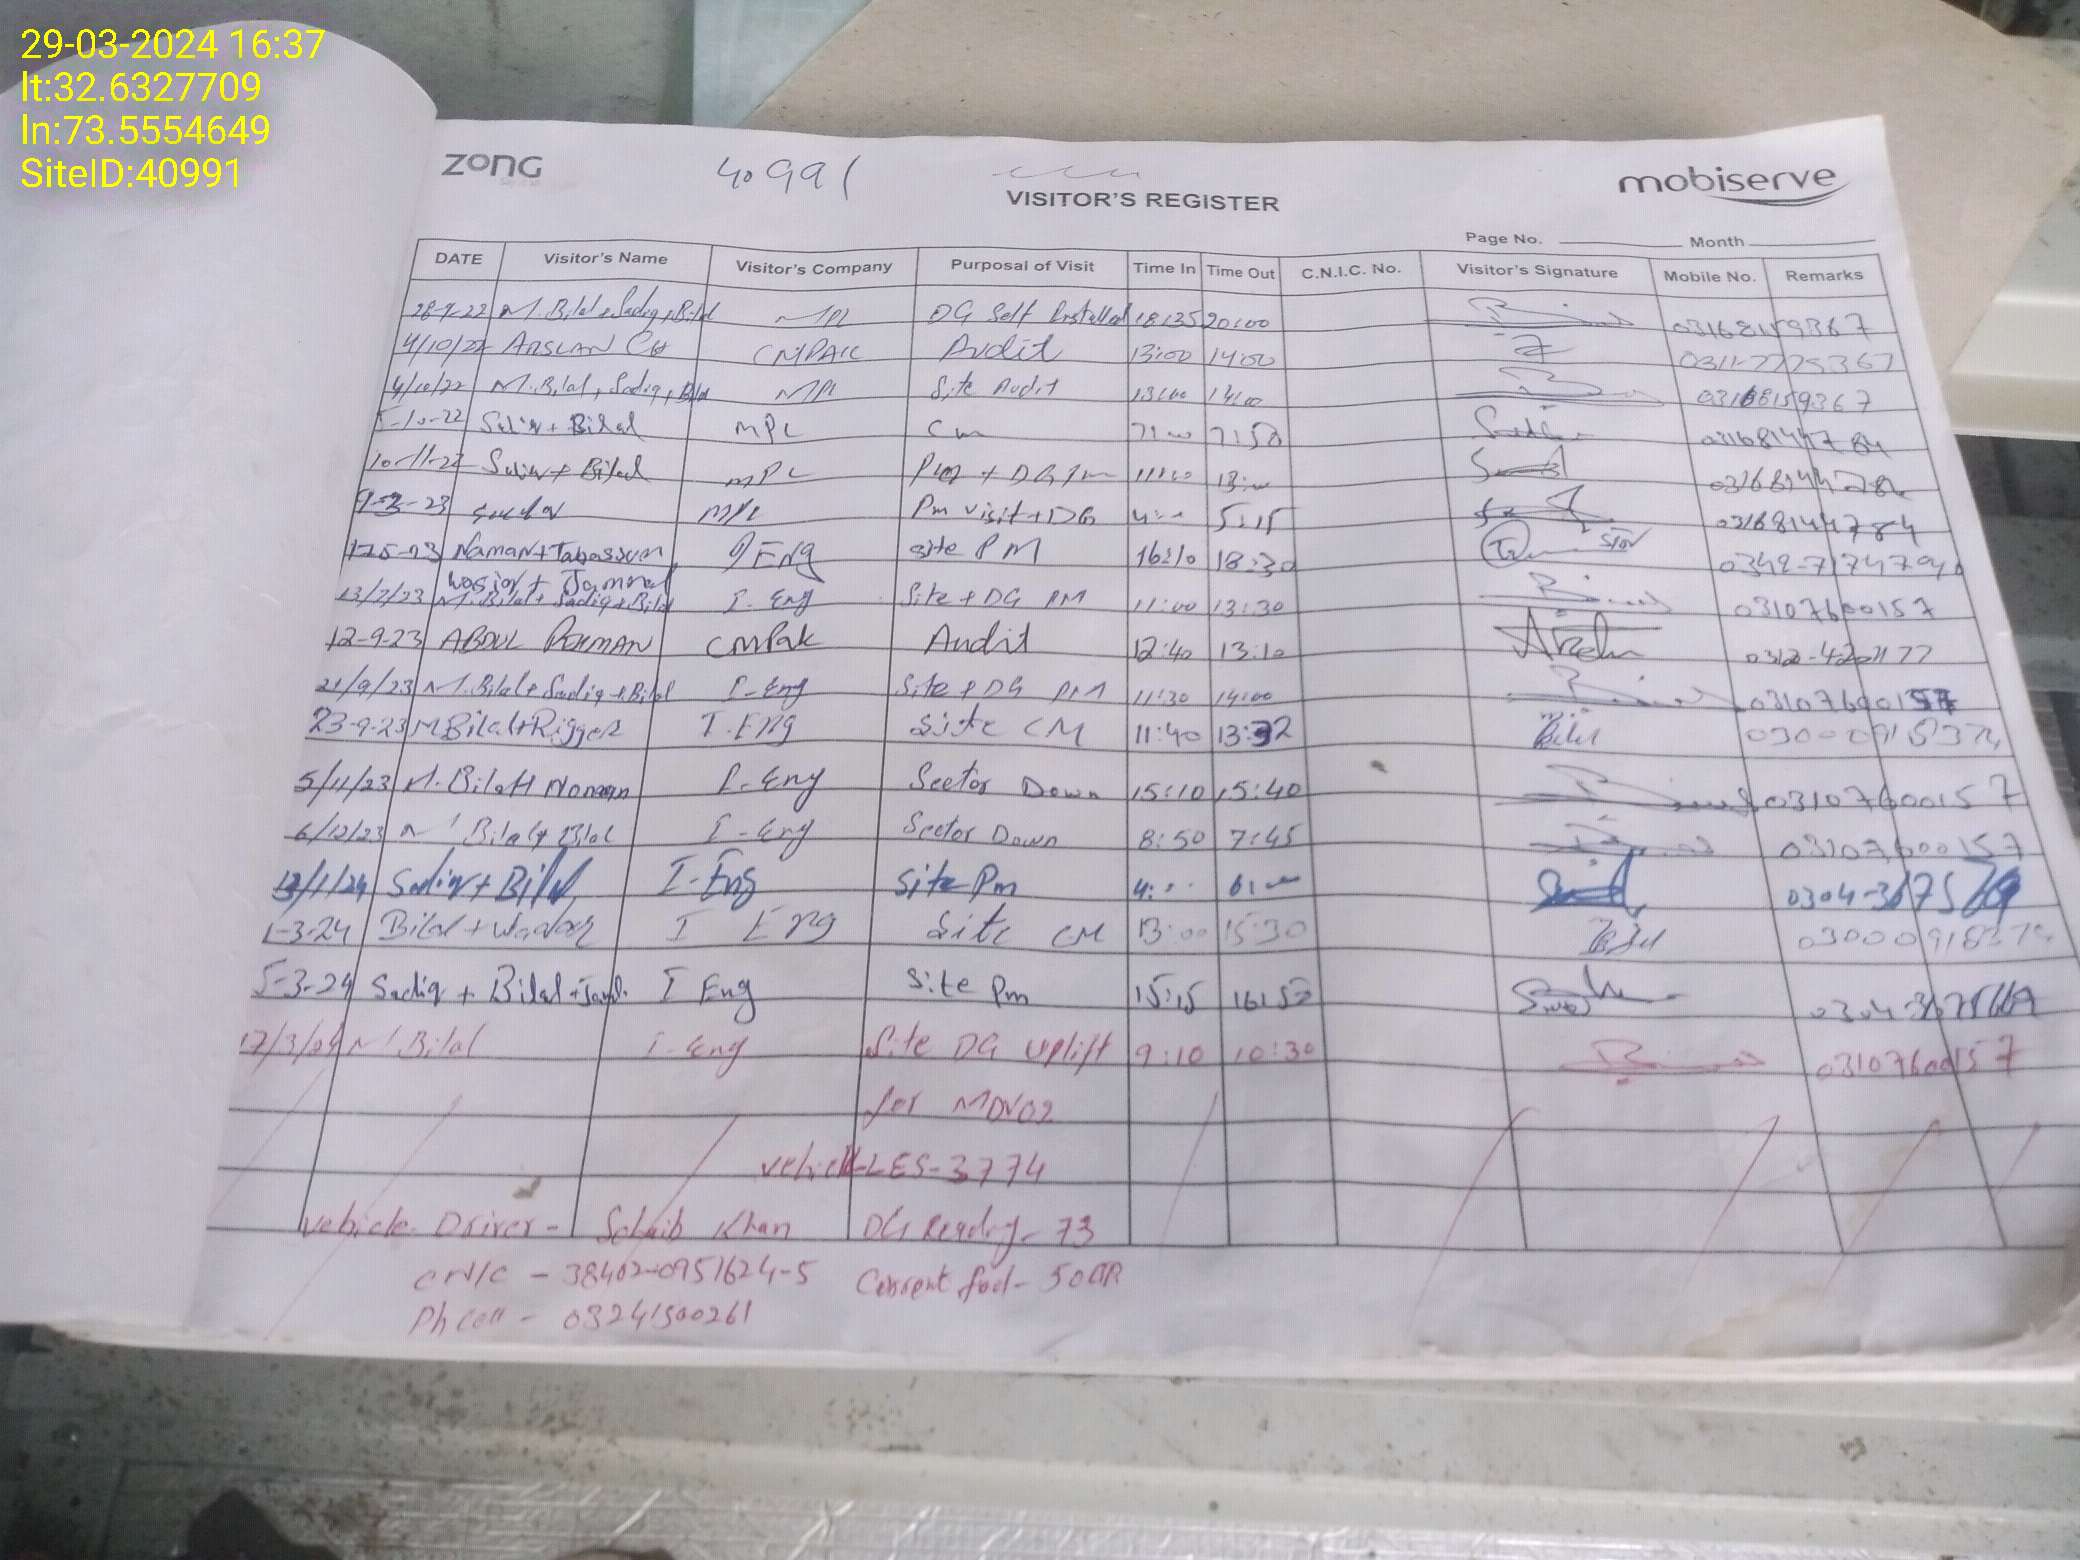 29-03-2024 16:37
lt:32.6327709
ln:73.5554649
SiteID:40991
zong 40991 mobiserve
VISITOR'S REGISTER
Page No. Month
DATE Visitor's Name Visitor's Company Purposal of Visit Time In Time Out C.N.I.C. No. Visitor's Signature Mobile No. Remarks
28-9-22 M.Bilal+Sadiq+Bilal MPL DG Self Installed 18:35 20:00 03168159367
4/10/22 ARSLAN CH CMPAK Audit 13:00 14:00 0311-7775367
4/10/22 M.Bilal, Sadiq, Bilal MPL Site Audit 13:00 14:00 03168159367
5-10-22 Sadiq + Bilal MPL Cm 7:50 03168144784
10-11-22 Sadiq + Bilal MPL PM + DG Pm 13:00 03168144784
9-3-23 MPL Pm visit+DG 5:15 03168144784
17-5-23 Naman+Tabassum ENG site PM 16:10 18:30
Waqar + Jammal
13/7/23 M.Bilal+Sadiq+Bilal I-Eng Site + DG PM 11:00 13:30 03107600157
12-9-23 ABDUL REHMAN CMPak Audit 12:40 13:10
21/9/23 M.Bilal+Sadiq+Bilal I-Eng Site + DG PM 11:30 14:00 03107600157
23-9-23 M Bilal+Rigger I.ENG Site CM 11:40 13:32 Bilal
5/11/23 M.Bilal+Noman I-Eng Sector Down 15:10 15:40 03107600157
6/12/23 M.Bilal+Bilal I-Eng Sector Down 8:50 7:45 03107600157
13/1/24 Sadiq+Bilal I-Eng Site Pm
1-3-24 Bilal+ I ENG Site CM 13:00 15:30 Bilal
5-3-24 Sadiq + Bilal I Eng Site Pm 15:15 16:50
17/3/24 M.Bilal I-Eng Site DG Uplift 9:10 10:30 03107600157
for MDV02
vehicle-LES-3774
Vehicle Driver- Sohaib Khan DG Reading-73
CNIC - 38402-0951624-5 Current fuel-
Ph cell - 03241500261